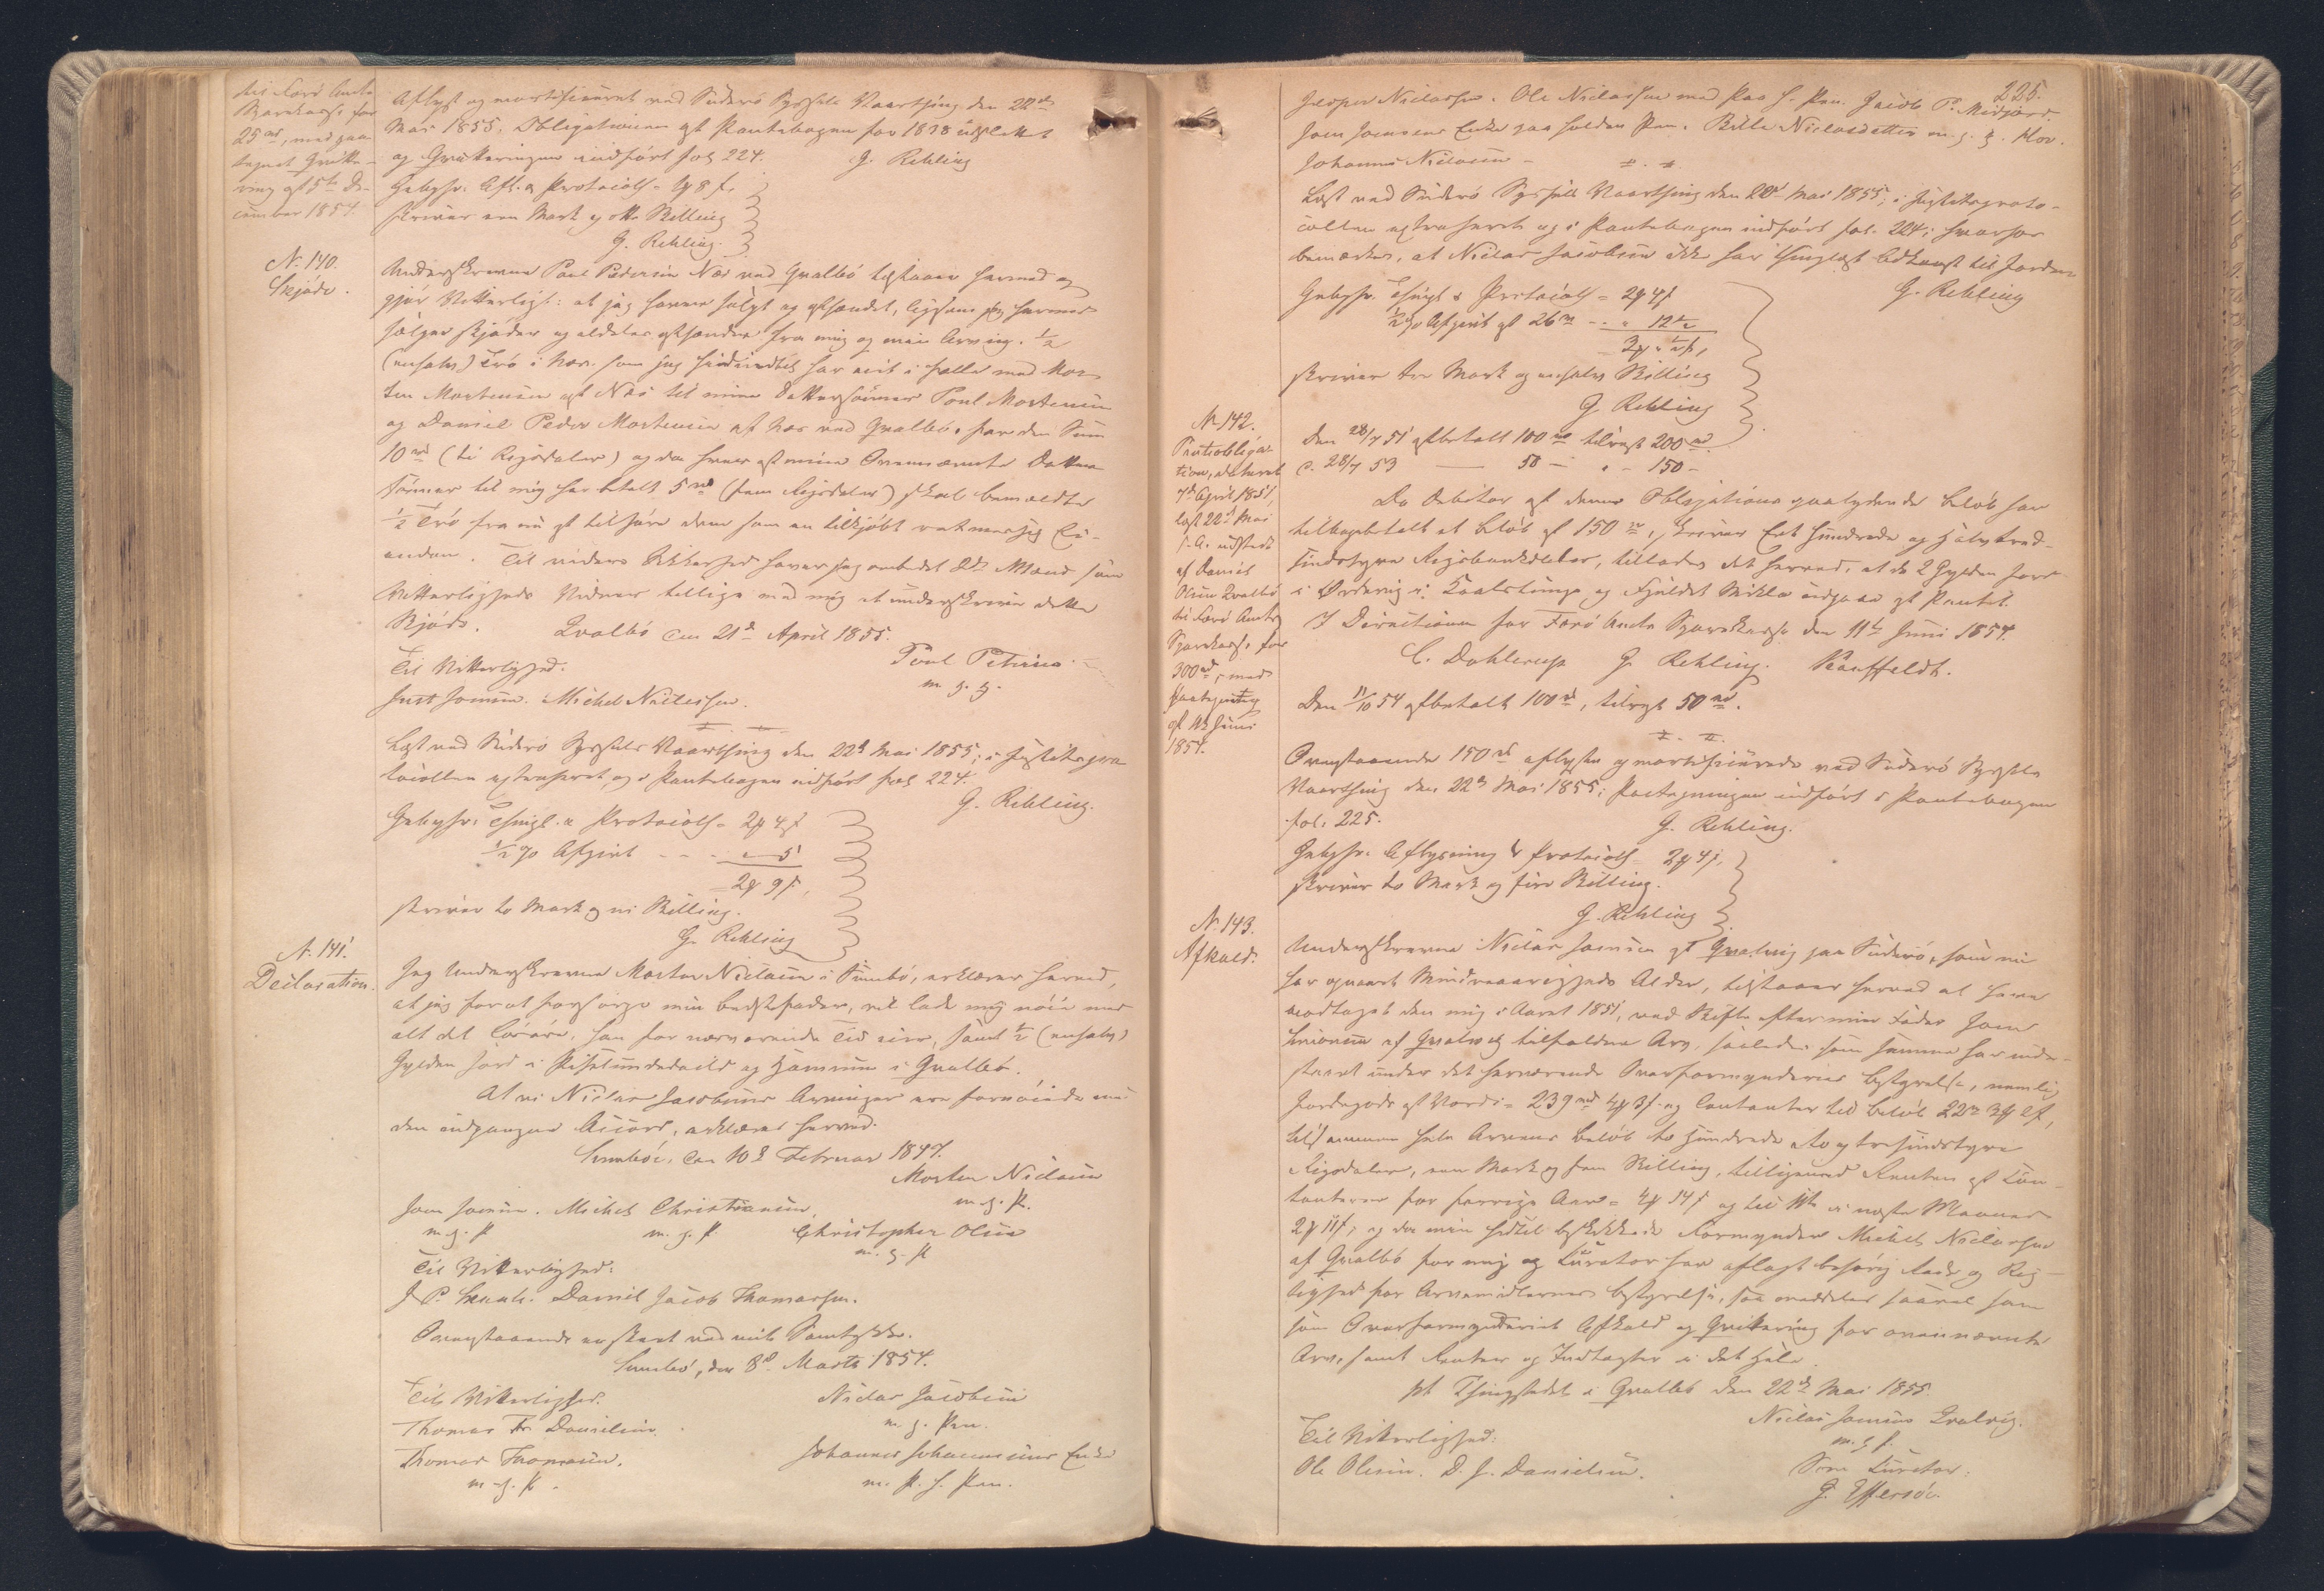 til Færö Amts
Sparekasse for
25 rd, med paa-
tegnet Qvitte-
ring af 5te De-
cember 1854.
Aflyst og mortificeret ved Suderö Syssels Vaarthing den 22de
Mai 1855. Obligationen af Pantebogen for 1838 udslettet
og Qvitteringen indført fol 224. G. Rehling
Gebyhr: Afl. & Protocoll = 1 8 f,
skriver een Mark og otte Skilling
G. Rehling.
N. 140.
Skjöde.
Underskrevne Poul Pedersen Næs ved Qvalbö tilstaaer herved og
gjör Vitterligt: at jeg haver solgt og afhændet, ligesom jeg herved
sælger skjöder og aldeles afhænder fra mig og mine Arving. 1/2
(enhalv) Tró i Næs. som jeg hidindtil har eiet i Fælles med Mor-
ten Mortensen af Næs til mine Dattersönner Poul Mortensen
og Daniel Peder Mortensen af Næs ved Qvalbö, for den Sum
10 rd (ti Rigsdaler) og da hver af mine Ovennævnte Datter
sönner til mig har betalt 5 rd (fem Rigsdaler) skal bemeldte
1/2 Tró fra nu af tilhöre dem som en tilkjöbt retmæssig Ei-
endom. Til videre Sikkerhed haver jeg ombedet 2de Mænd som
Vitterligheds Vidner tillige med mig at underskrive dette
Skjöde. Qvalbö den 21de April 1855.
Til Vitterlighed. Poul Petersen
m. h. P.
Just Joensen. Michel Niclassen.
Læst ved Suderö Syssels Vaarthing den 22de Mai 1855; i Justitspro-
tocollen extraheret, og i Pantebogen indført fol 224.
G. Rehling.
Gebyhr: Thingl. & Protocoll = 2 4 f
1/2 % Afgivt - - - 5
2 9 f,
skriver to Mark og ni Skilling.
G. Rehling
N. 141.
Declaration.
Jeg Underskrevne Morten Niclasen i Sumbö, erklærer herved,
at jeg for at forsörge min Bedstefader, vil lade mig nöie med
alt det Lösöre, han for nærværende Tid eier, samt 1/2 (enhalv)
Gylden Jord i og Hamren i Qvalbö.
At vi Niclas Jacobsens Arvinger ere fornöiede med
den indgangne Accord, erklæres herved.
Sumböe, den 10de Februar 1847.
Morten Niclasen
m. h. P.
Joen Joensen. Michel Christiansen,
m. h. P. m. h. P. Christopher Olsen
m. h. P.
Til Vitterlighed:
J. P. Daniel Jacob Thomassen.
Ovenstaaende er skeet ved mit Samtykke.
Sumbö, den 8de Marts 1854.
Til Vitterlighed. Niclas Jacobsen
Thomas Fr. Danielsen. m. h. Pen.
Thomas Thomasen. Johannes Johannesens Enke
m. h. P. m. P. h. Pen.
225.
Jesper Niclassen. Ole Niclassen med paa h. Pen. Jacob P. Midjord.
Joen Joensens Enke paa holden Pen. Bille Niclasdatter m. h. P.
Johannes Niclasen -
Læst ved Suderö Syssels Vaarthing den 22de Mai 1855; i Justitsproto-
collen extraheret og i Pantebogen indført fol. 224; hvorhos
bemærkes, at Niclas Jacobsen ikke har thinglæst Adkomst til Jorden
G. Rehling
Gebyhr. Thingl & Protocoll = 2 4 f
1/2 % Afgivt af 26 rd - - " 12 1/2
3 " 1/2 f,
skriver tre Mark og enhalv Skilling
G Rehling
N. 142.
Panteobliga-
tion, dateret
7de April 1851,
læst 22de Mai
s. A. udstedt
af Daniel
Olsen Qvalbö
til Færö Amts
Sparekasse for
300 rd, med
Paategning
af 11te Juni
1854.
Den 28/7 51 afbetalt 100 rd tilrest 200 rd
d. 28/7 53 — 50 - " - 150 -
Da Debitor af denne Obligations paalydende Belöb har
tilbagebetalt et Belöb af 150 rd, skriver Eet Hundrede og halvtred-
sindstyve Rigsbankdaler, tillades det herved, at de 2 Gylden Jord
i Ørdevig i og Mikle udgaae af Pantet.
I Directionen for Færö Amts Sparekasse den 11te Juni 1854.
C. Dahlerup G. Rehling. Kauffeldt.
Den 11/10 54 afbetalt 100 rd, tilrest 50 rd.
Ovenstaaende 150 rd aflyste og mortificerede ved Suderö Syssels
Vaarthing den 22de Mai 1855; Paategningen indført i Pantebogen
fol. 225.
G. Rehling.
Gebyhr: Aflysning & Protocoll 2 4 f,
skriver to Mark og fire Skilling.
G. Rehling
N. 143.
Afkald.
Underskrevne Niclas Joensen af Qvalvig paa Suderö, som nu
har opnaaet Mindreaarigheds Alder, tilstaaer herved at have
modtaget den mig i Aaret 1851, ved Skifte efter min Fader Joen
Simonsen af Qvalvig tilfaldne Arv, saaledes som samme har inde-
staaet under det herværende Overformynderies Bestyrelse, nemlig
Jordegods af Værdi = 239 rd 4 3 f. og Contanter til Belöb 22 rd 3 2 f,
tilsammen hele Arvens Belöb to Hundrede to og tresindstyve
Rigsdaler, een Mark og fem Skilling, tilligemed Renten af Con-
tanterne for forrige Aar = 4 14 f og til 11te i næste Maaned
2 11 f, og da min hidtil beskikkede Formynder Michel Niclassen
af Qvalbö for mig og Curator har aflagt behörig Rede og Rig-
tighed for Arvemidlernes Bestyrelse, saa meddeles saavel ham
som Overformynderiet Afkald og Qvittering for ovennævnte
Arv, samt Renter og Indtægter i det Hele.
pt Thingstedet i Qvalbö den 22de Mai 1855.
Niclas Joensen Qvalvig.
Til Vitterlighed: m. h. P.
Ole Olesen. D. J. Danielsen. Som Curator:
G. Effersöe.